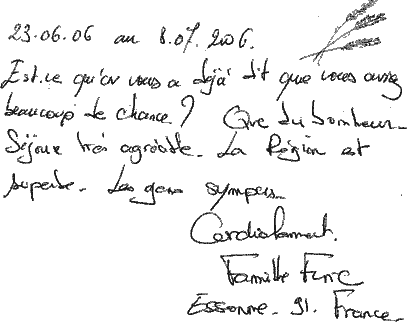 23.06.06 au 8.07.2006.
Est-ce qu'on vous a déjà dit que vous avez
beaucoup de chance ? Que du bonheur.
Séjour très agréable. La Région est
superbe. Les gens sympas.
Cordialement.
Famille
Essonne. 91. France